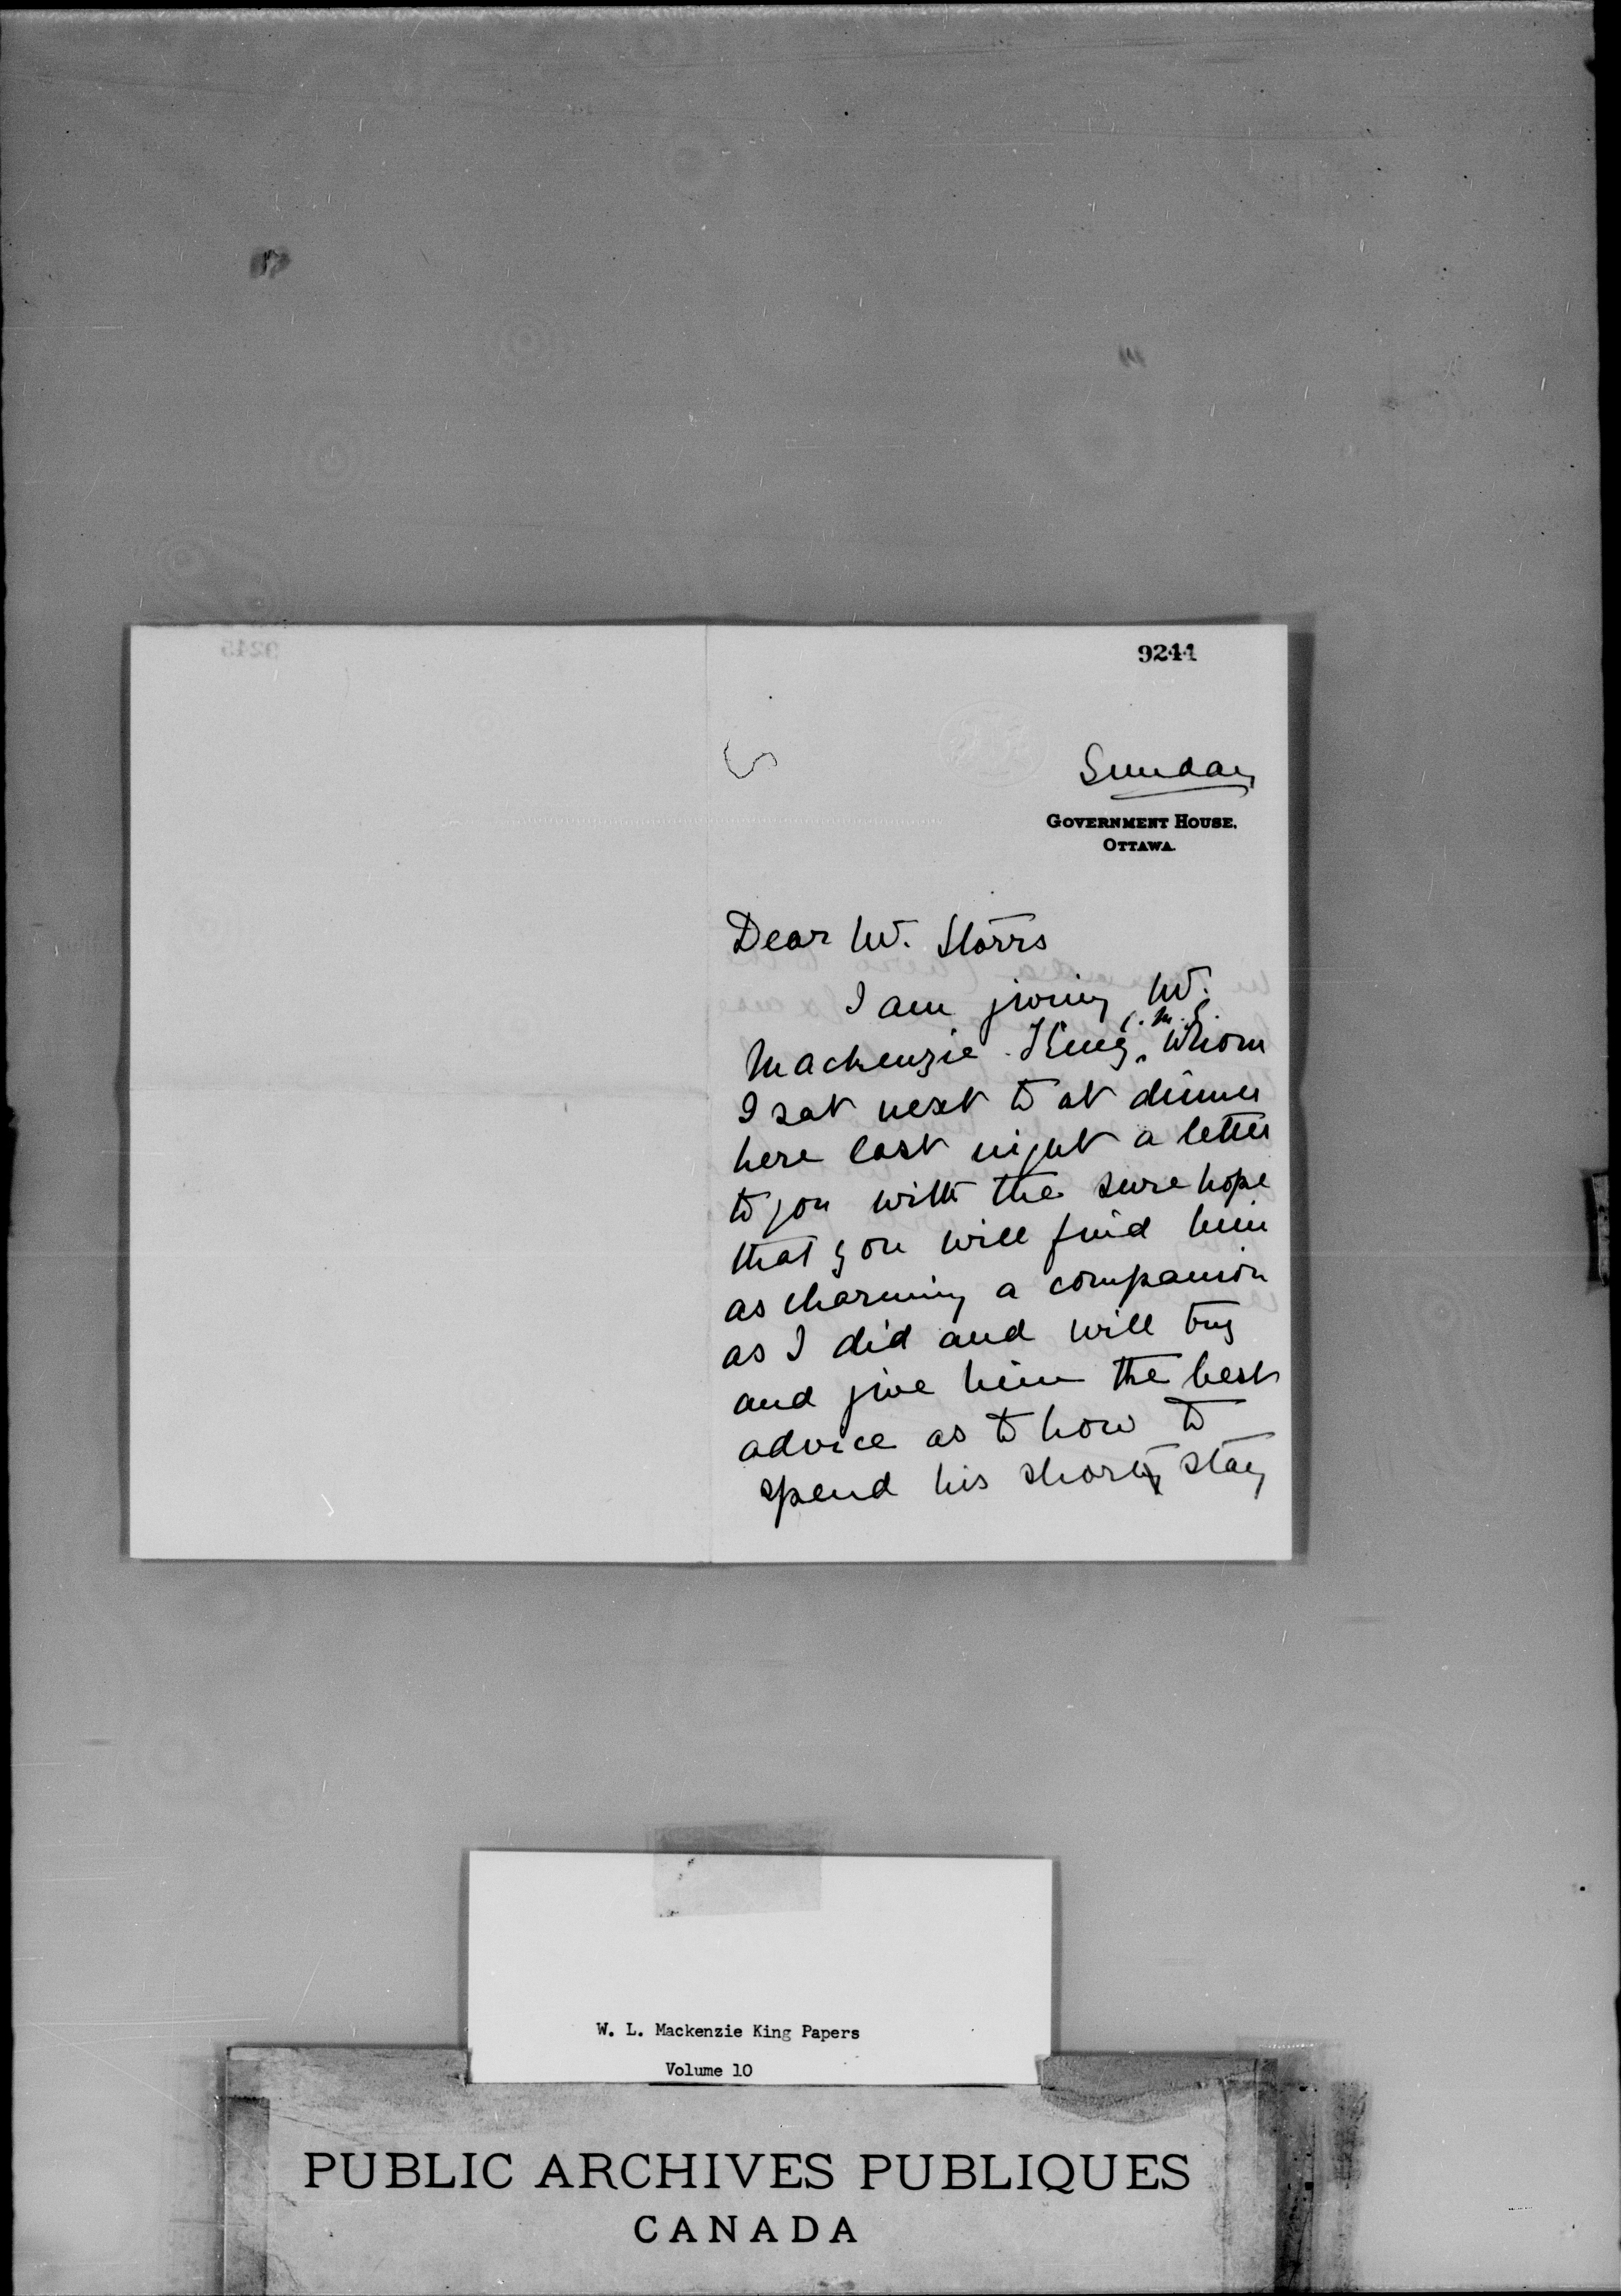 9244
Sunday
GOVERNMENT HOUSE.
OTTAWA.
Dear Mr. Storrs
I am giving Mr.
Mackenzie King, C.M.G. whom
I sat next to at dinner
here last night a letter
to you with the sure hope
that you will find him
as charming a companion
as I did and will try
and give him the best
advice as to how to
spend his short stay
W. L. Mackenzie King Papers
Volume 10
PUBLIC ARCHIVES PUBLIQUES
CANADA